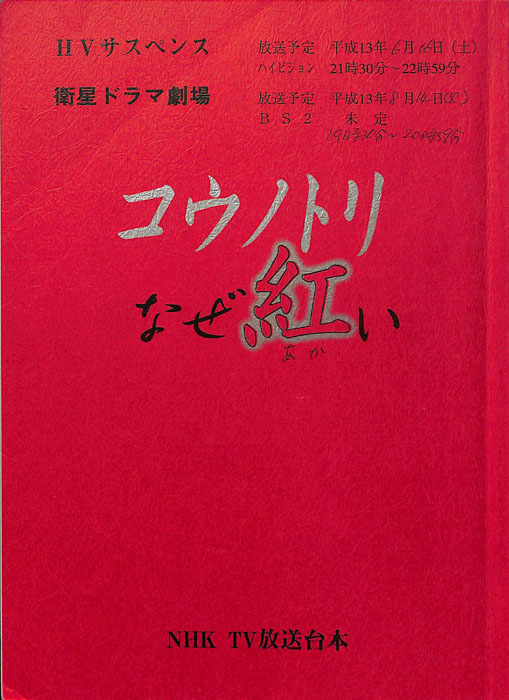 HVサスペンス 放送予定 平成13年6月16日(土)
ハイビジョン 21時30分〜22時59分
衛星ドラマ劇場 放送予定 平成13年8月14日(火)
BS2 未定
19時30分〜20時59分
コウノトリ
なぜ紅い
あか
NHK TV放送台本